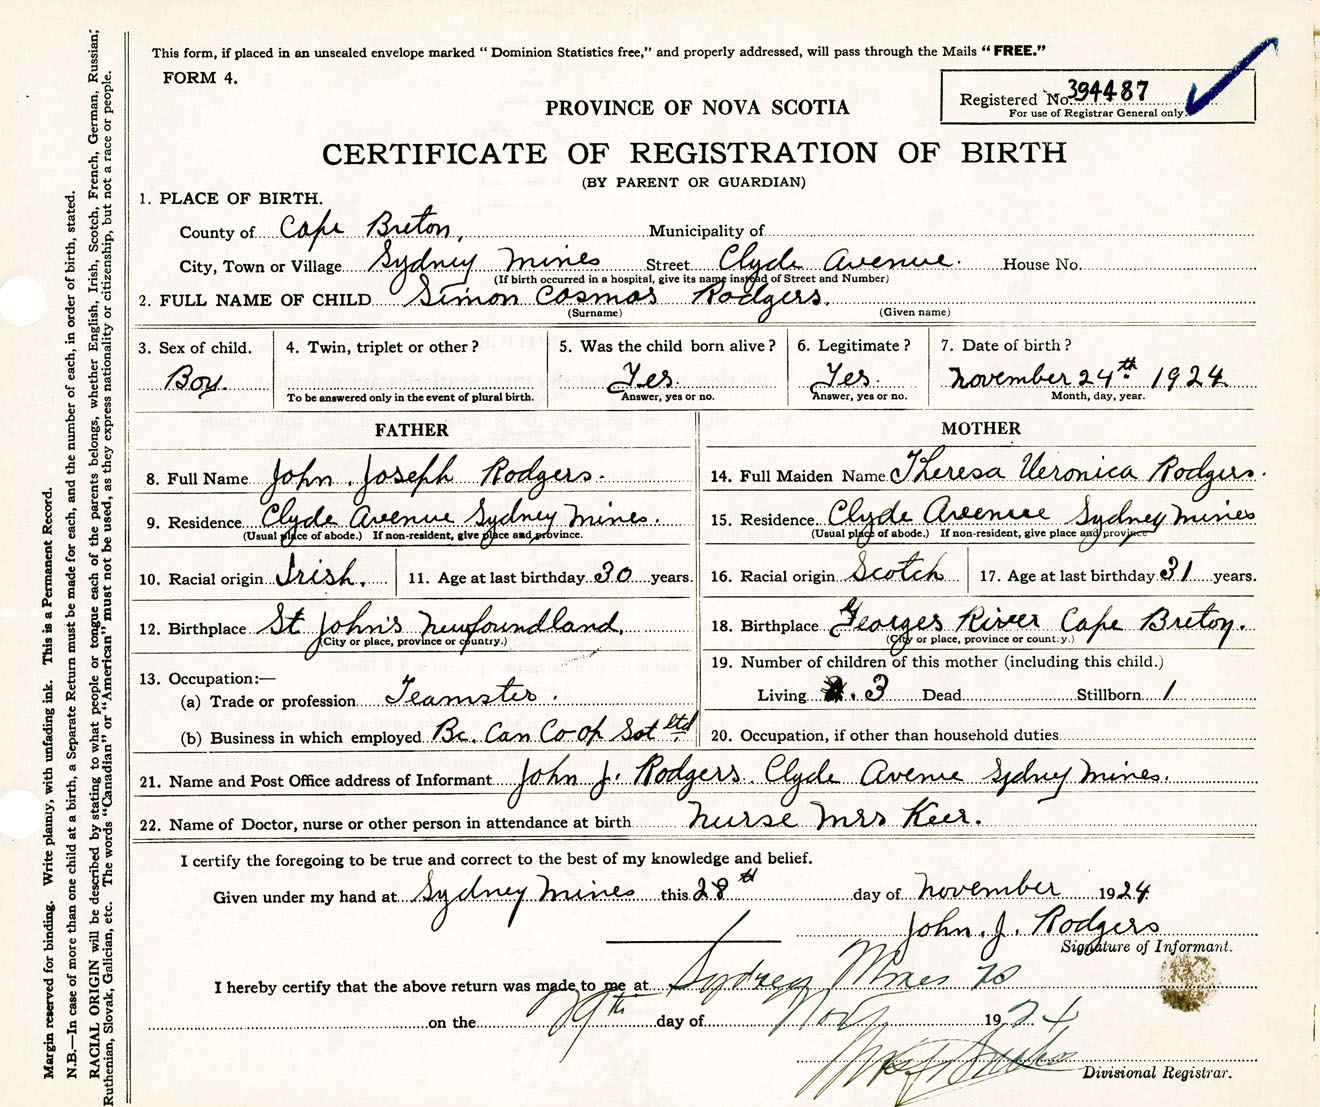 This form, if placed in an unsealed envelope marked "Dominion Statistics free," and properly addressed, will pass through the Mails "FREE."
FORM 4.
Registered No. 394487
For use of Registrar General only.
PROVINCE OF NOVA SCOTIA
CERTIFICATE OF REGISTRATION OF BIRTH
(BY PARENT OR GUARDIAN)
1. PLACE OF BIRTH.
County of Cape Breton, Municipality of
City, Town or Village Sydney Mines Street Clyde Avenue. House No.
(If birth occurred in a hospital, give its name instead of Street and Number)
2. FULL NAME OF CHILD Simon Cosmas Rodgers.
(Surname) (Given name)
3. Sex of child. 4. Twin, triplet or other? 5. Was the child born alive? 6. Legitimate? 7. Date of birth?
Boy. Yes. Yes. November 24th 1924
To be answered only in the event of plural birth. Answer, yes or no. Answer, yes or no. Month, day, year.
FATHER
8. Full Name John Joseph Rodgers.
9. Residence Clyde Avenue Sydney Mines.
(Usual place of abode.) If non-resident, give place and province.
10. Racial origin Irish. 11. Age at last birthday 30 years.
12. Birthplace St John's Newfoundland.
(City or place, province or country.)
13. Occupation:—
(a) Trade or profession Teamster.
(b) Business in which employed Bc. Can Co-op Sot ltd
MOTHER
14. Full Maiden Name Theresa Veronica Rodgers.
15. Residence Clyde Avenue Sydney Mines
(Usual place of abode.) If non-resident, give place and province
16. Racial origin Scotch 17. Age at last birthday 31 years.
18. Birthplace Georges River Cape Breton.
(City or place, province or country.)
19. Number of children of this mother (including this child.)
Living 3 Dead Stillborn 1
20. Occupation, if other than household duties
21. Name and Post Office address of Informant John J. Rodgers Clyde Avenue Sydney Mines.
22. Name of Doctor, nurse or other person in attendance at birth Nurse Mrs Keer.
I certify the foregoing to be true and correct to the best of my knowledge and belief.
Given under my hand at Sydney Mines this 28th day of November 1924
John. J. Rodgers
Signature of Informant.
I hereby certify that the above return was made to me at Sydney Mines
on the 29th day of Nov 1924
Divisional Registrar.
Margin reserved for binding. Write plainly, with unfading ink. This is a Permanent Record.
N.B.—In case of more than one child at a birth, a Separate Return must be made for each, and the number of each, in order of birth, stated.
RACIAL ORIGIN will be described by stating to what people or tongue each of the parents belongs, whether English, Irish, Scotch, French, German, Russian,
Ruthenian, Slovak, Galician, etc. The words "Canadian" or "American" must not be used, as they express nationality or citizenship, but not a race or people.